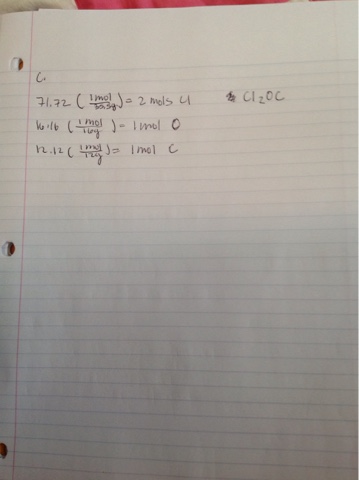 C.
71.72 (1mol/35.5g) = 2 mols Cl Cl₂OC
16.16 (1 mol/16g) = 1 mol O
12.12 (1 mol/12g) = 1 mol C